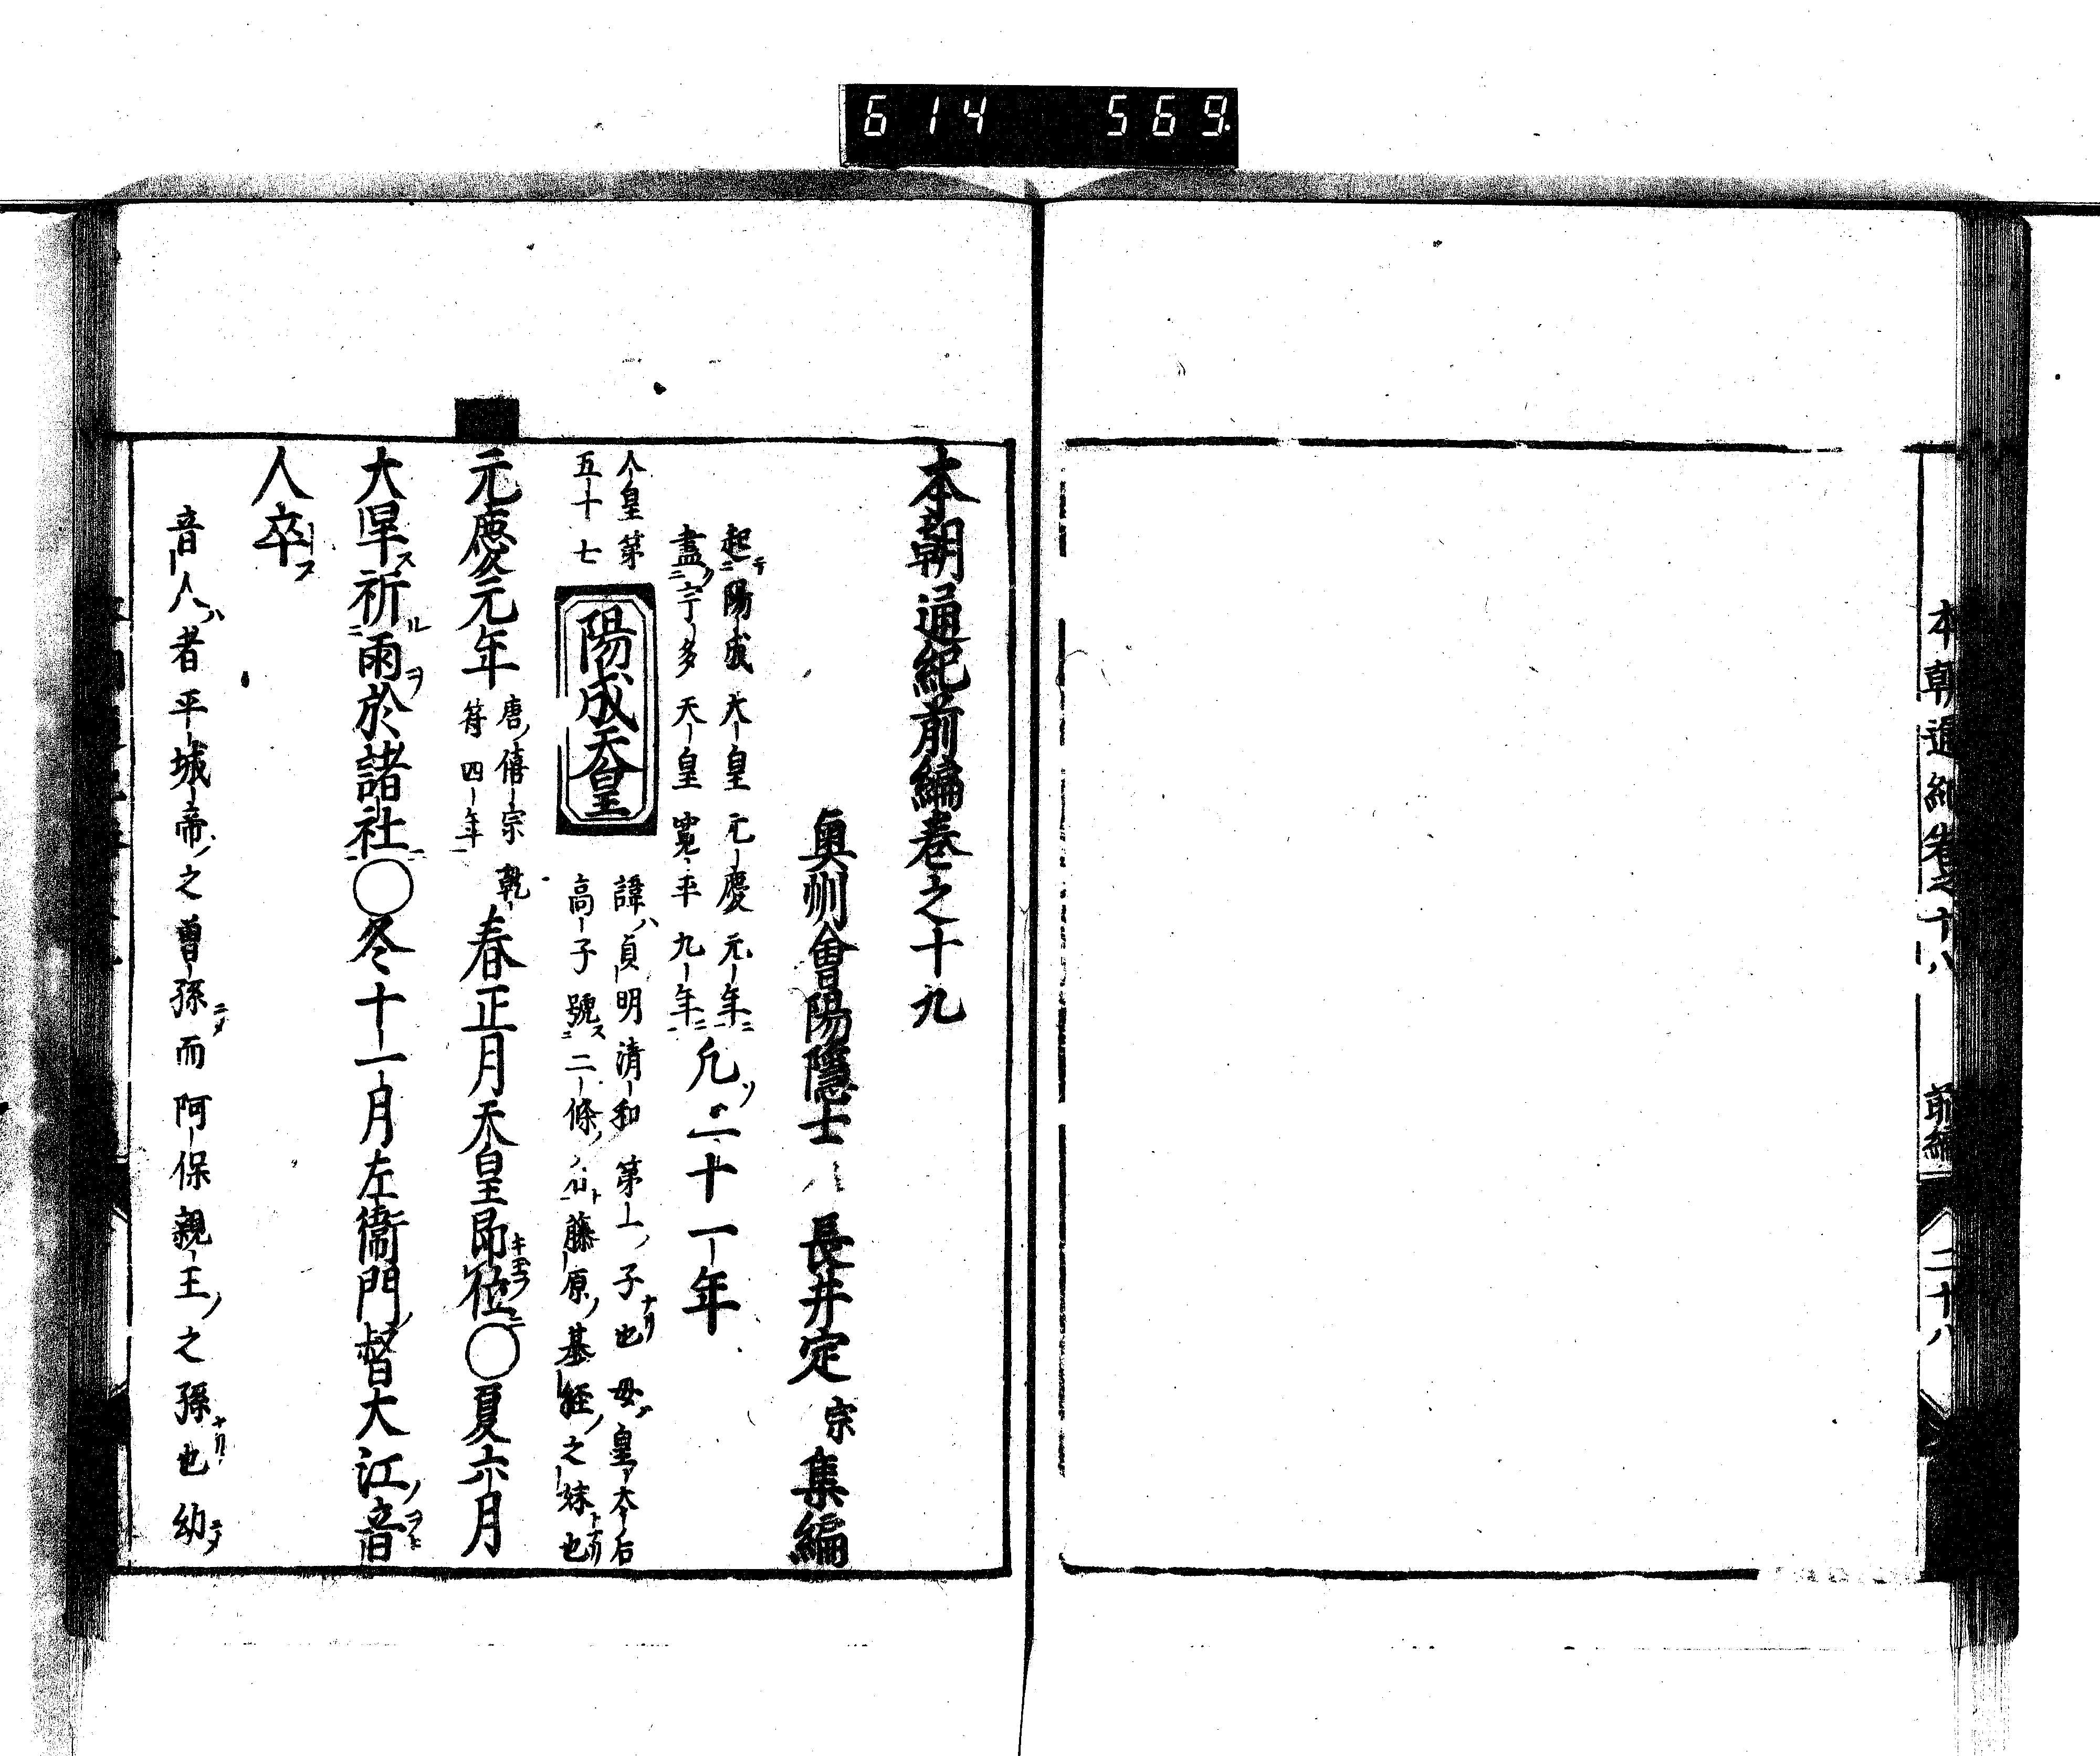 614 569
本朝通紀卷之十八 前編 二十八
本朝通紀前編卷之十九
奥州會陽隱士 長井定宗集編
起陽成天皇元慶元年
盡宇多天皇寛平九年
凡二十一年
人皇第
五十七
陽成天皇
諱ハ貞明清和第一ノ子也母皇太后
高子號二條后藤原ノ基經ノ之妹也
元慶元年
唐ノ僖宗乾
符四年
春正月天皇即位○夏六月
大旱ス祈ル雨ヲ於諸社ニ○冬十一月左衞門ノ督大江ノ音
人卒ス
音人ハ者平城帝ノ之曽孫ニメ而阿保親王ノ之孫也幼ニメ